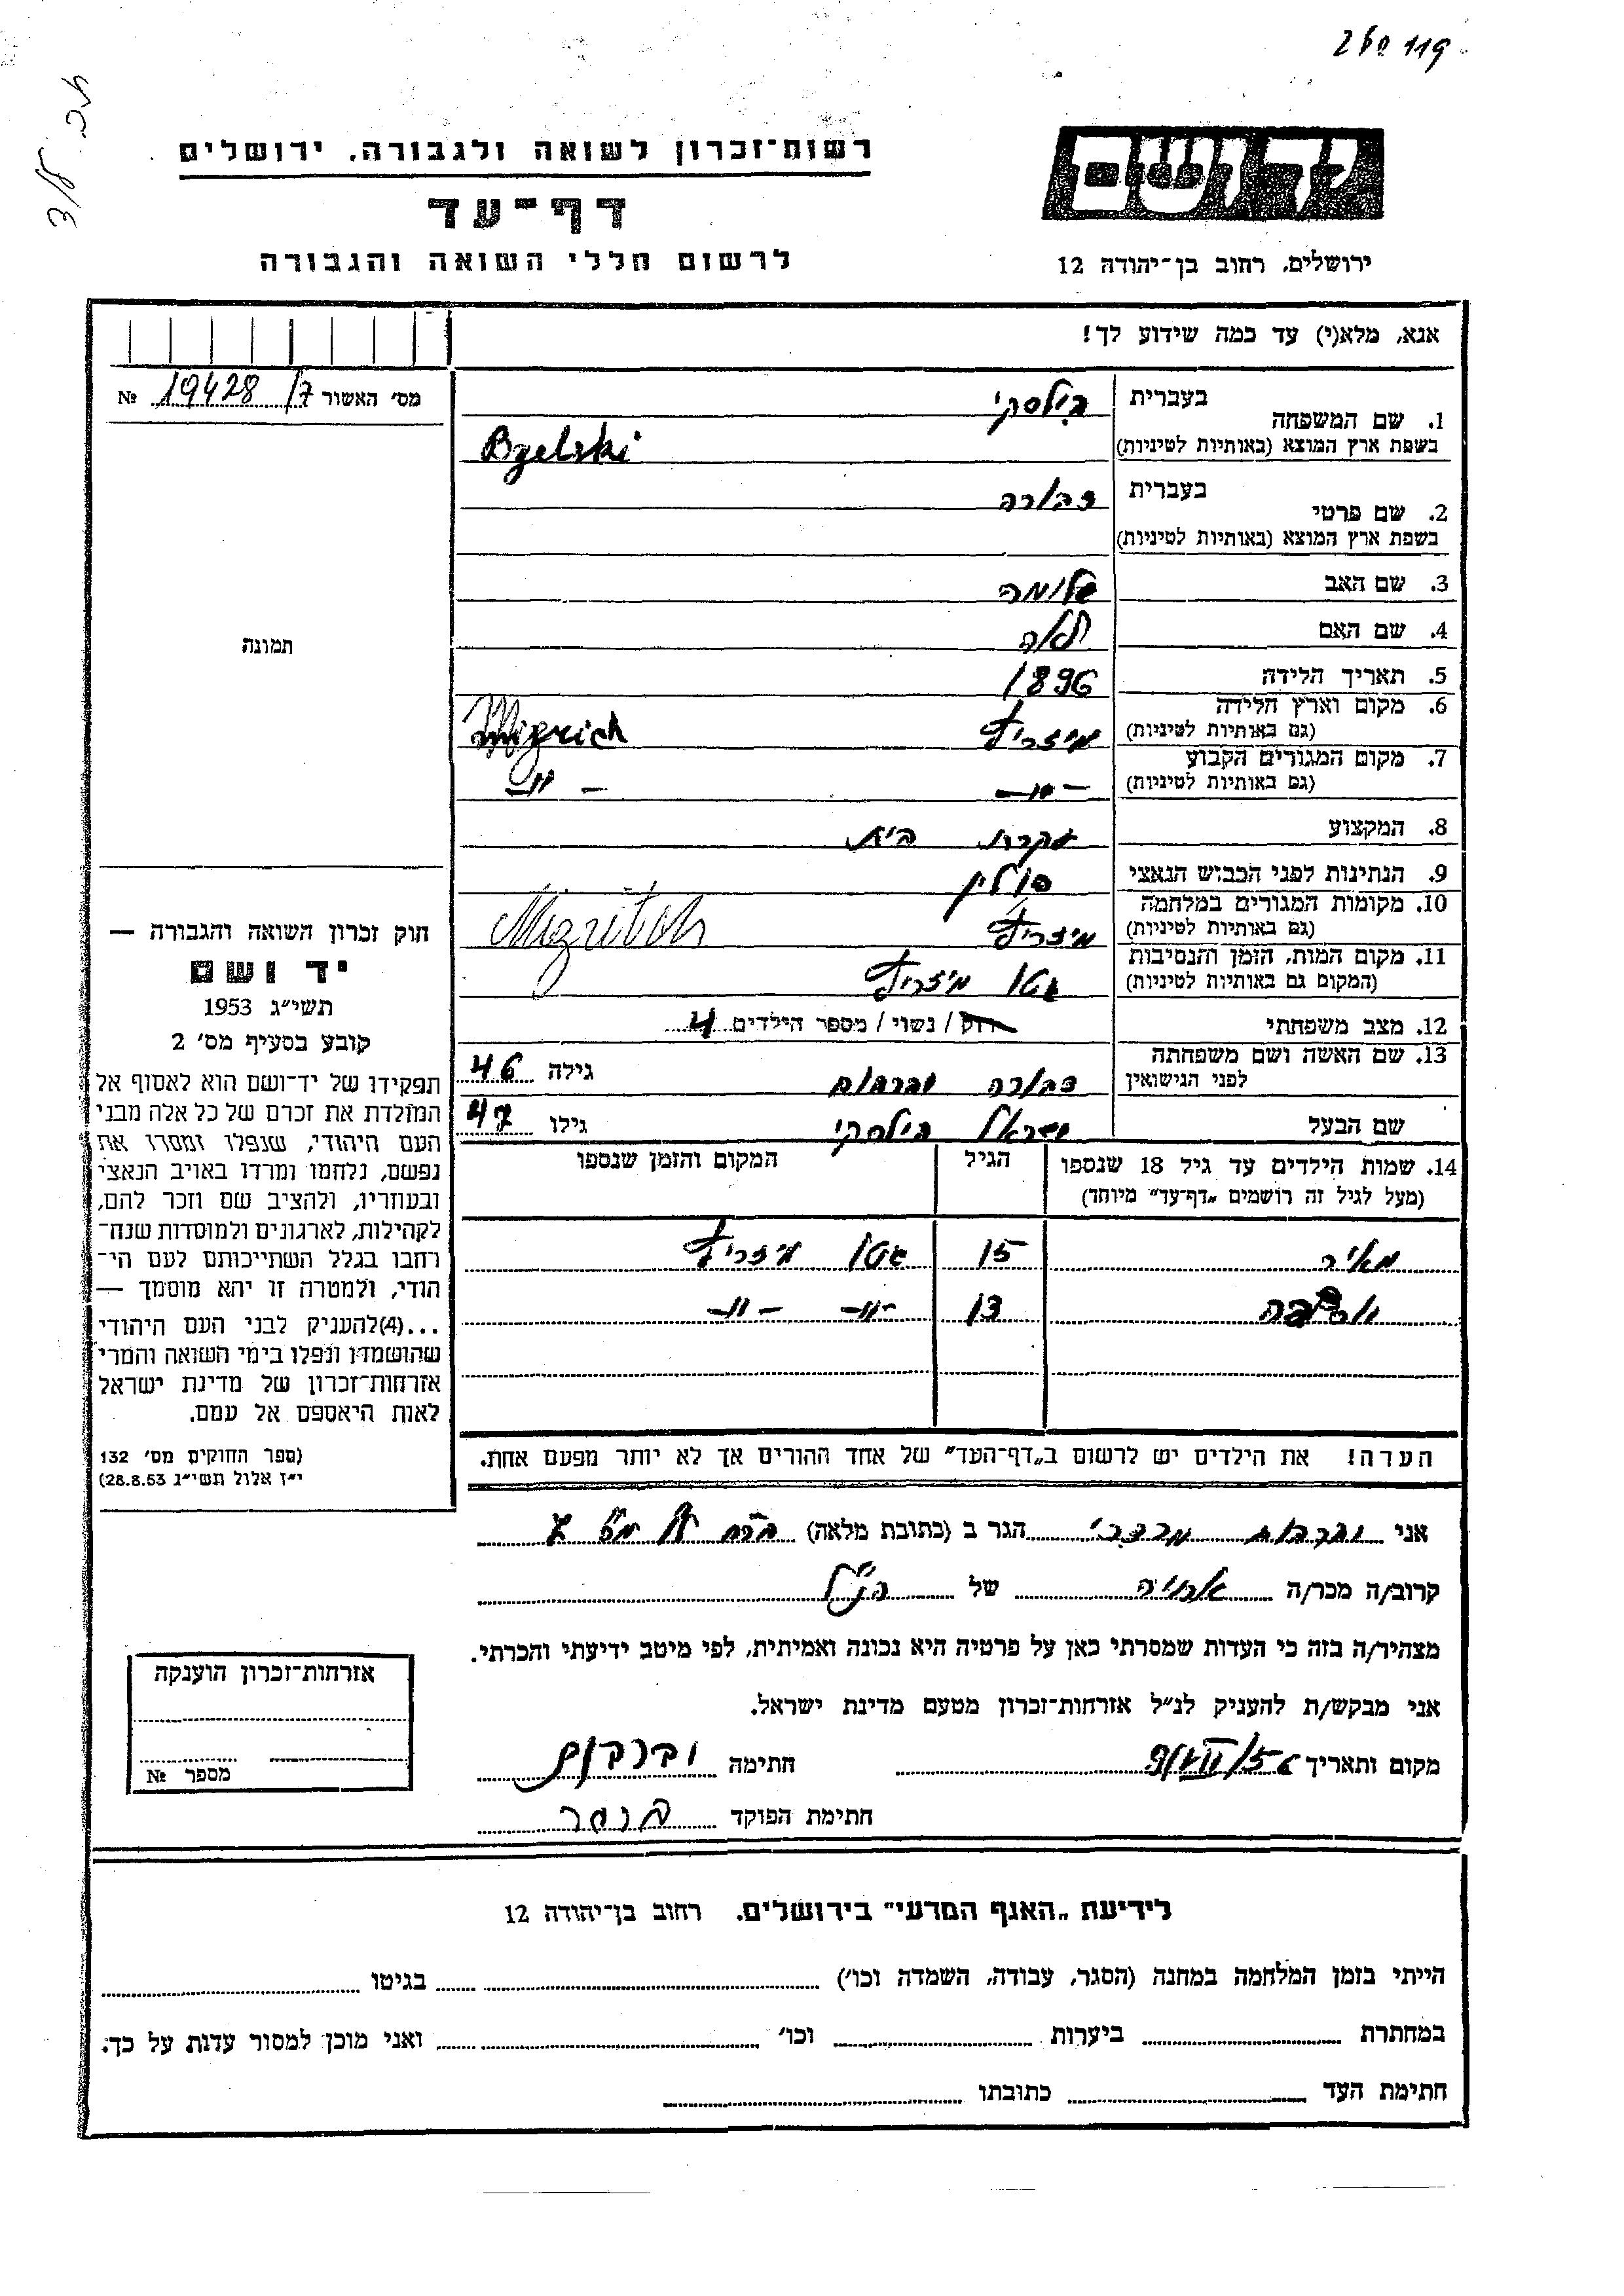 רשות־זכרון לשואה ולגבורה. ירושלים
דף־עד
לרשום חללי השואה והגבורה
ידושם
ירושלים, רחוב בן־יהודה 12
אנא, מלא(י) עד כמה שידוע לך!
מס׳ האשור 19428/7 №
תמונה
חוק זכרון השואה והגבורה —
יד ושם
תשי״ג 1953
קובע בסעיף מס׳ 2
תפקידו של יד־ושם הוא לאסוף אל
המולדת את זכרם של כל אלה מבני
העם היהודי, שנפלו ומסרו את
נפשם, נלחמו ומרדו באויב הנאצי
ובעוזריו, ולהציב שם וזכר להם,
לקהילות, לארגונים ולמוסדות שנח־
רחבו בגלל השתייכותם לעם הי־
הודי, ולמטרה זו יהא מוסמך —
...(4)להעניק לבני העם היהודי
שהושמדו ונפלו בימי השואה והמרי
אזרחות־זכרון של מדינת ישראל
לאות היאספם אל עמם.
(ספר החוקים מס׳ 132
י״ז אלול תשי״ג 28.8.53)
1. שם המשפחה
בעברית בילסקי
בשפת ארץ המוצא (באותיות לטיניות) Bzelski
2. שם פרטי
בעברית דבורה
בשפת ארץ המוצא (באותיות לטיניות)
3. שם האב שלומה
4. שם האם לאה
5. תאריך הלידה 1896
6. מקום וארץ הלידה
(גם באותיות לטיניות) מיזריץ
7. מקום המגורים הקבוע
(גם באותיות לטיניות) -״- -״-
8. המקצוע עקרת בית
9. הנתינות לפני הכבוש הנאצי פולין
10. מקומות המגורים במלחמה
(גם באותיות לטיניות) מיזריץ Mizritch
11. מקום המות, הזמן והנסיבות
(המקום גם באותיות לטיניות) גטו מיזריץ
12. מצב משפחתי רוק / נשוי / מספר הילדים 4
13. שם האשה ושם משפחתה
לפני הנישואין דבורה וברבוים גילה 46
שם הבעל ישראל בילסקי גילו 47
14. שמות הילדים עד גיל 18 שנספו הגיל המקום והזמן שנספו
(מעל לגיל זה רושמים „דף־עד״ מיוחד)
מאיר 15 גטו מיזריץ
13 -״- -״-
הערה! את הילדים יש לרשום ב„דף־העד״ של אחד ההורים אך לא יותר מפעם אחת.
אני מרדכי הגר ב (כתובת מלאה)
קרוב/ה מכר/ה אחיה של הנ״ל
מצהיר/ה בזה כי העדות שמסרתי כאן על פרטיה היא נכונה ואמיתית, לפי מיטב ידיעתי והכרתי.
אני מבקש/ת להעניק לנ״ל אזרחות־זכרון מטעם מדינת ישראל.
מקום ותאריך חתימה
חתימת הפוקד
אזרחות־זכרון הוענקה
מספר №
לידיעת „האגף המדעי״ בירושלים. רחוב בן־יהודה 12
הייתי בזמן המלחמה במחנה (הסגר, עבודה, השמדה וכו׳) בגיטו
במחתרת ביערות וכו׳ ואני מוכן למסור עדות על כך.
חתימת העד כתובתו